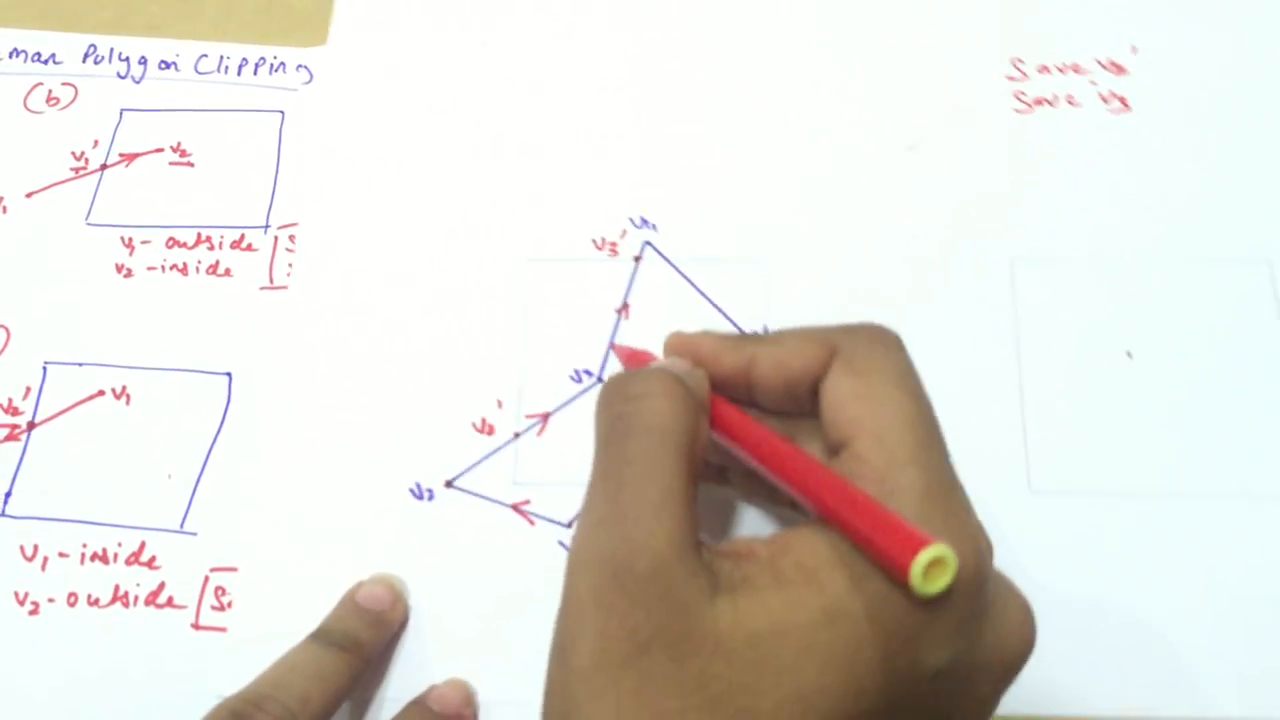 man Polygon Clipping
(b)
v1'
v2
v1 - outside
v2 - inside
v2'
v1
v1 - inside
v2 - outside
Save v2'
Save v3
v4
v3'
v3
v2'
v2